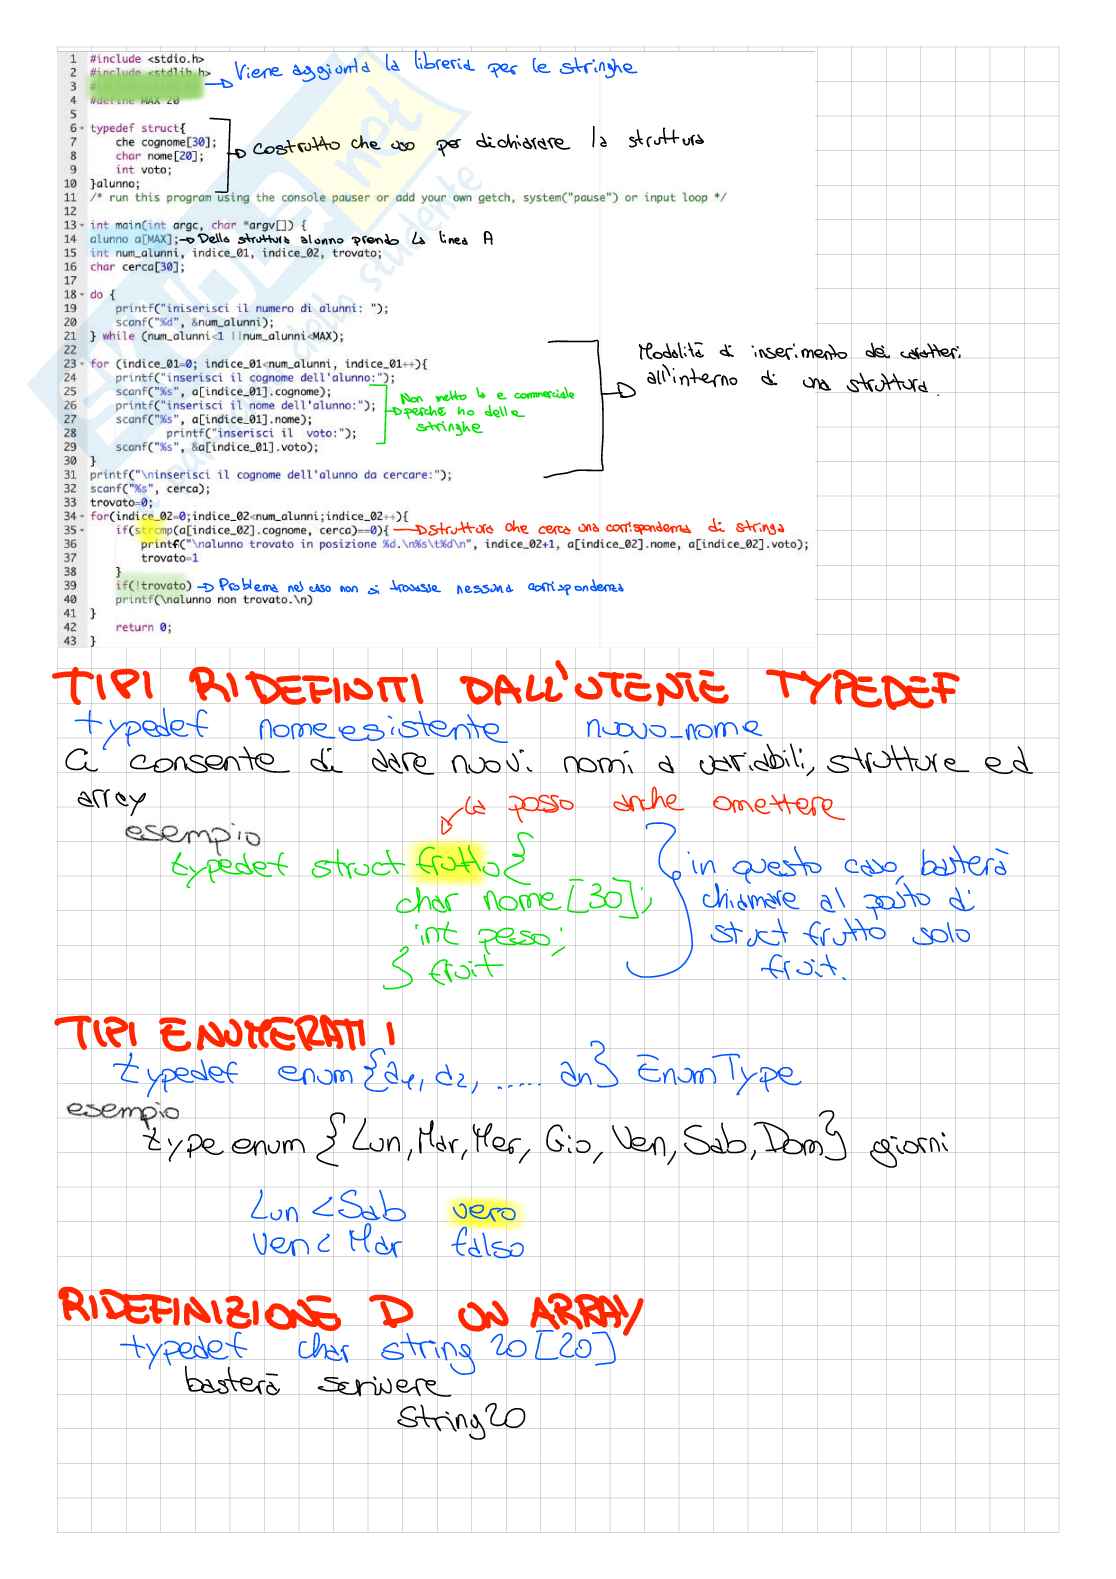 1 #include <stdio.h>
2 #include <stdlib.h> Viene aggiunta la libreria per le stringhe
3 #
4 #define MAX 20
5
6 typedef struct{
7 che cognome[30];
8 char nome[20]; Costrutto che uso per dichiarare la struttura
9 int voto;
10 }alunno;
11 /* run this program using the console pauser or add your own getch, system("pause") or input loop */
12
13 int main(int argc, char *argv[]) {
14 alunno a[MAX]; Dello struttura alunno prendo la linea A
15 int num_alunni, indice_01, indice_02, trovato;
16 char cerca[30];
17
18 do {
19 printf("iniserisci il numero di alunni: ");
20 scanf("%d", &num_alunni);
21 } while (num_alunni<1 ||num_alunni<MAX);
22
23 for (indice_01=0; indice_01<num_alunni, indice_01++){
24 printf("inserisci il cognome dell'alunno:");
25 scanf("%s", a[indice_01].cognome);
26 printf("inserisci il nome dell'alunno:");
27 scanf("%s", a[indice_01].nome);
28 printf("inserisci il voto:");
29 scanf("%s", &a[indice_01].voto);
30 }
Non metto la e commerciale
perché ho delle
stringhe
Modalità di inserimento dei caratteri
all'interno di una struttura.
31 printf("\ninserisci il cognome dell'alunno da cercare:");
32 scanf("%s", cerca);
33 trovato=0;
34 for(indice_02=0;indice_02<num_alunni;indice_02++){
35 if(strcmp(a[indice_02].cognome, cerca)==0){ Struttura che cerca una corrispondenza di stringa
36 printf("\nalunno trovato in posizione %d.\n%s\t%d\n", indice_02+1, a[indice_02].nome, a[indice_02].voto);
37 trovato=1
38 }
39 if(!trovato) Problema nel caso non si trovasse nessuna corrispondenza
40 printf(\nalunno non trovato.\n)
41 }
42 return 0;
43 }
TIPI RIDEFINITI DALL'UTENTE TYPEDEF
typedef nomeesistente nuovo_nome
Ci consente di dare nuovi nomi a variabili, strutture ed
array
la posso anche omettere
esempio
typedef struct frutto {
char nome [30];
int peso;
} fruit
in questo caso, basterà
chiamare al posto di
struct frutto solo
fruit.
TIPI ENUMERATI
typedef enum {d1, d2, ..... dn} EnumType
esempio
type enum {Lun, Mar, Mer, Gio, Ven, Sab, Dom} giorni
Lun < Sab vero
Ven < Mar falso
RIDEFINIZIONE D UN ARRAY
typedef char string 20 [20]
basterà scrivere
string20